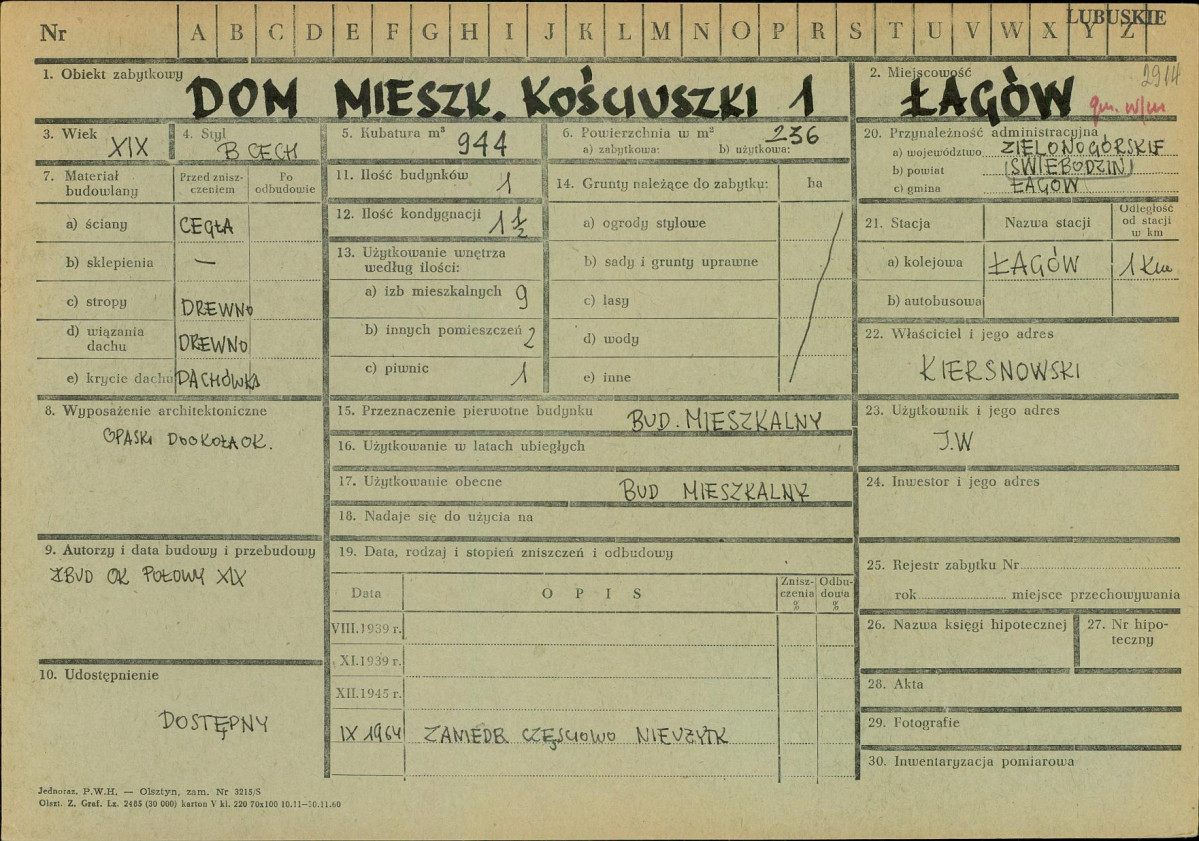 Nr A B C D E F G H I J K L M N O P R S T U V W X Y Z
LUBUSKIE
2914
1. Obiekt zabytkowy
DOM MIESZK. KOŚCIUSZKI 1
2. Miejscowość
ŁAGÓW gm. w/m
3. Wiek
XIX
4. Styl
B CECH
5. Kubatura m³
944
6. Powierzchnia w m²
236
a) zabytkowa: b) użytkowa:
7. Materiał budowlany
Przed zniszczeniem
Po odbudowie
a) ściany CEGŁA
b) sklepienia —
c) stropy DREWNO
d) wiązania dachu DREWNO
e) krycie dachu DACHÓWKA
8. Wyposażenie architektoniczne
OPASKI DOOKOŁA OK.
9. Autorzy i data budowy i przebudowy
ZBUD OK POŁOWY XIX
10. Udostępnienie
DOSTĘPNY
11. Ilość budynków 1
12. Ilość kondygnacji 1 1/2
13. Użytkowanie wnętrza
według ilości:
a) izb mieszkalnych 9
b) innych pomieszczeń 2
c) piwnic 1
14. Grunty należące do zabytku: ha
a) ogrody stylowe
b) sady i grunty uprawne
c) lasy
d) wody
e) inne
15. Przeznaczenie pierwotne budynku BUD. MIESZKALNY
16. Użytkowanie w latach ubiegłych
17. Użytkowanie obecne BUD MIESZKALNY
18. Nadaje się do użycia na
19. Data, rodzaj i stopień zniszczeń i odbudowy
Data OPIS Zniszczenia % Odbudowa %
VIII.1939 r.
XI.1939 r.
XII.1945 r.
IX 1964 ZANIEDB. CZĘŚCIOWO NIEUŻYTK
20. Przynależność administracyjna
a) województwo ZIELONOGÓRSKIE
b) powiat (ŚWIEBODZIN)
c) gmina ŁAGÓW
21. Stacja Nazwa stacji Odległość od stacji w km
a) kolejowa ŁAGÓW 1 Km
b) autobusowa
22. Właściciel i jego adres
KIERSNOWSKI
23. Użytkownik i jego adres
J.W
24. Inwestor i jego adres
25. Rejestr zabytku Nr
rok miejsce przechowywania
26. Nazwa księgi hipotecznej
27. Nr hipoteczny
28. Akta
29. Fotografie
30. Inwentaryzacja pomiarowa
Jednoraz. P.W.H. — Olsztyn, zam. Nr 3215/S
Olszt. Z. Graf. Lz. 2485 (30 000) karton V kl. 220 70x100 10.11—30.11.60